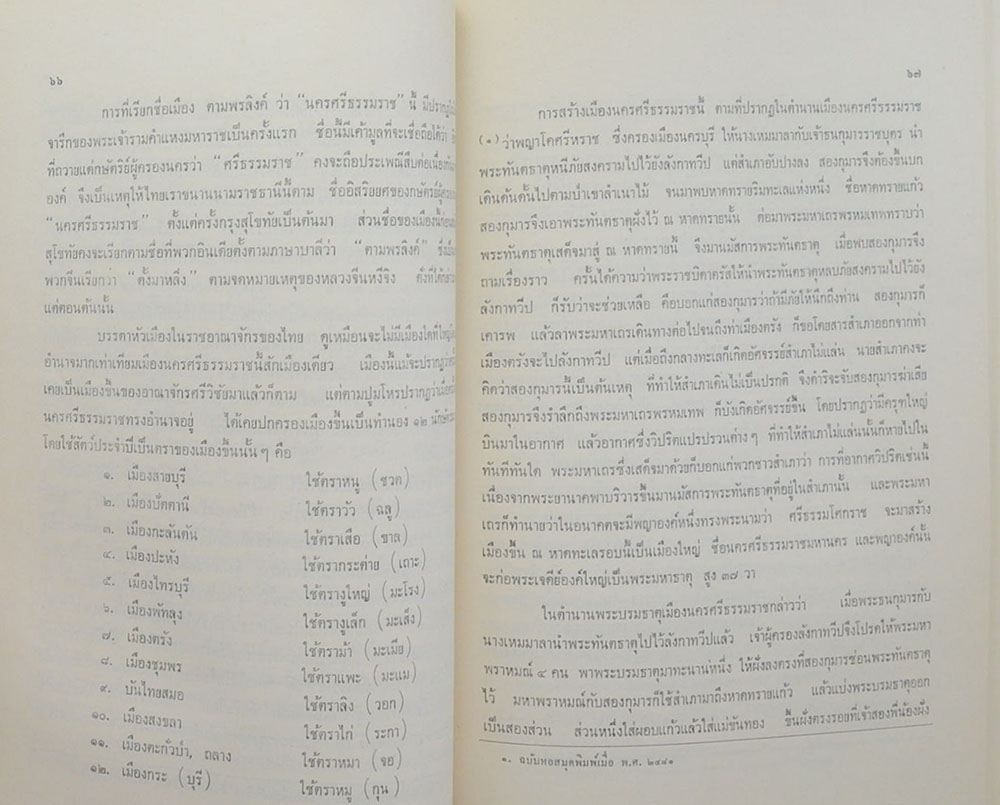 ๖๖
การที่เรียกชื่อเมือง ตามพรลิงค์ ว่า “นครศรีธรรมราช” นี้ มีปรากฏใน
จารึกของพระเจ้ารามคำแหงมหาราชเป็นครั้งแรก ชื่อนี้มีเค้ามูลที่จะเชื่อถือได้ว่า
ที่ถวายแด่กษัตริย์ผู้ครองนครว่า “ศรีธรรมราช” คงจะถือประเพณีสืบต่อเนื่องกัน
องค์ จึงเป็นเหตุให้ไทยเราขนานนามราชธานีนี้ตาม ชื่ออิสริยยศของกษัตริย์ผู้ครอง
“นครศรีธรรมราช” ตั้งแต่ครั้งกรุงสุโขทัยเป็นต้นมา ส่วนชื่อของเมืองนี้ก่อน
สุโขทัยคงจะเรียกตามชื่อที่พวกอินเดียตั้งตามภาษาบาลีว่า “ตามพรลิงค์” ซึ่ง
พวกจีนเรียกว่า “ตั้งมาหลิ่ง” ตามจดหมายเหตุของหลวงจีนหงีจิง ดังที่ได้กล่าว
แต่ตอนต้นนั้น
บรรดาหัวเมืองในราชอาณาจักรของไทย ดูเหมือนจะไม่มีเมืองใดที่ใหญ่
อำนาจมากเท่าเทียมเมืองนครศรีธรรมราชนี้สักเมืองเดียว เมืองนี้แม้จะปรากฏว่า
เคยเป็นเมืองขึ้นของอาณาจักรศรีวิชัยมาแล้วก็ตาม แต่ตามปูมโหรปรากฏว่าเมื่อ
นครศรีธรรมราชทรงอำนาจอยู่ ได้เคยปกครองเมืองขึ้นเป็นทำนอง ๑๒ นักษัตร
โดยใช้สัตว์ประจำปีเป็นตราของเมืองขึ้นนั้น ๆ คือ
๑. เมืองสายบุรี ใช้ตราหนู (ชวด)
๒. เมืองปัตตานี ใช้ตราวัว (ฉลู)
๓. เมืองกะลันตัน ใช้ตราเสือ (ขาล)
๔. เมืองปะหัง ใช้ตรากระต่าย (เถาะ)
๕. เมืองไทรบุรี ใช้ตรางูใหญ่ (มะโรง)
๖. เมืองพัทลุง ใช้ตรางูเล็ก (มะเส็ง)
๗. เมืองตรัง ใช้ตราม้า (มะเมีย)
๘. เมืองชุมพร ใช้ตราแพะ (มะแม)
๙. บันไทยสมอ ใช้ตราลิง (วอก)
๑๐. เมืองสงขลา ใช้ตราไก่ (ระกา)
๑๑. เมืองตะกั่วป่า, ถลาง ใช้ตราหมา (จอ)
๑๒. เมืองกระ (บุรี) ใช้ตราหมู (กุน)
๖๗
การสร้างเมืองนครศรีธรรมราชนี้ ตามที่ปรากฏในตำนานเมืองนครศรีธรรมราช
(๑) ว่าพญาโคศรีหราช ซึ่งครองเมืองนครบุรี ให้นางเหมมาลากับเจ้าธนกุมารราชบุตร นำ
พระทันตธาตุหนีภัยสงครามไปไว้ยังลังกาทวีป แต่สำเภาอับปางลง สองกุมารจึงต้องขึ้นบก
เดินด้นดั้นไปตามป่าเขาลำเนาไม้ จนมาพบหาดทรายริมทะเลแห่งหนึ่ง ชื่อหาดทรายแก้ว
สองกุมารจึงเอาพระทันตธาตุฝังไว้ ณ หาดทรายนั้น ต่อมาพระมหาเถรพรหมเทพทราบว่า
พระทันตธาตุเสด็จมาสู่ ณ หาดทรายนี้ จึงมานมัสการพระทันตธาตุ เมื่อพบสองกุมารจึง
ถามเรื่องราว ครั้นได้ความว่าพระราชบิดาตรัสให้นำพระทันตธาตุหลบภัยสงครามไปไว้ยัง
ลังกาทวีป ก็รับว่าจะช่วยเหลือ คือบอกแก่สองกุมารว่าถ้ามีภัยให้นึกถึงท่าน สองกุมารก็
เคารพ แล้วลาพระมหาเถรเดินทางต่อไปจนถึงท่าเมืองตรัง ก็ขอโดยสารสำเภาออกจากท่า
เมืองตรังจะไปลังกาทวีป แต่เมื่อถึงกลางทะเลก็เกิดอัศจรรย์สำเภาไม่แล่น นายสำเภาคงจะ
คิดว่าสองกุมารนี้เป็นต้นเหตุ ที่ทำให้สำเภาเดินไม่เป็นปรกติ จึงดำริจะจับสองกุมารฆ่าเสีย
สองกุมารจึงรำลึกถึงพระมหาเถรพรหมเทพ ก็บังเกิดอัศจรรย์ขึ้น โดยปรากฏว่ามีครุฑใหญ่
บินมาในอากาศ แล้วอากาศซึ่งวิปริตแปรปรวนต่างๆ ที่ทำให้สำเภาไม่แล่นนั้นก็หายไปใน
ทันทีทันใด พระมหาเถรซึ่งเสด็จมาด้วยก็บอกแก่พวกชาวสำเภาว่า การที่อากาศวิปริตเช่นนี้
เนื่องจากพระยานาคพาบริวารขึ้นมานมัสการพระทันตธาตุที่อยู่ในสำเภานั้น และพระมหา
เถรก็ทำนายว่าในอนาคตจะมีพญาองค์หนึ่งทรงพระนามว่า ศรีธรรมโศกราช จะมาสร้าง
เมืองขึ้น ณ หาดทะเลรอบนี้เป็นเมืองใหญ่ ชื่อนครศรีธรรมราชมหานคร และพญาองค์นั้น
จะก่อพระเจดีย์องค์ใหญ่เป็นพระมหาธาตุ สูง ๓๗ วา
ในตำนานพระบรมธาตุเมืองนครศรีธรรมราชกล่าวว่า เมื่อพระธนกุมารกับ
นางเหมมาลานำพระทันตธาตุไปไว้ลังกาทวีปแล้ว เจ้าผู้ครองลังกาทวีปจึงโปรดให้พระมหา
พราหมณ์ ๔ คน พาพระบรมธาตุมาทะนานหนึ่ง ให้ฝังลงตรงที่สองกุมารซ่อนพระทันตธาตุ
ไว้ มหาพราหมณ์กับสองกุมารก็ใช้สำเภามาถึงหาดทรายแก้ว แล้วแบ่งพระบรมธาตุออก
เป็นสองส่วน ส่วนหนึ่งใส่ผอบแก้วแล้วใส่แม่ขันทอง ขึ้นฝั่งตรงรอยที่เจ้าสองพี่น้องฝัง
๑. ฉบับหอสมุดพิมพ์เมื่อ พ.ศ. ๒๔๘๑